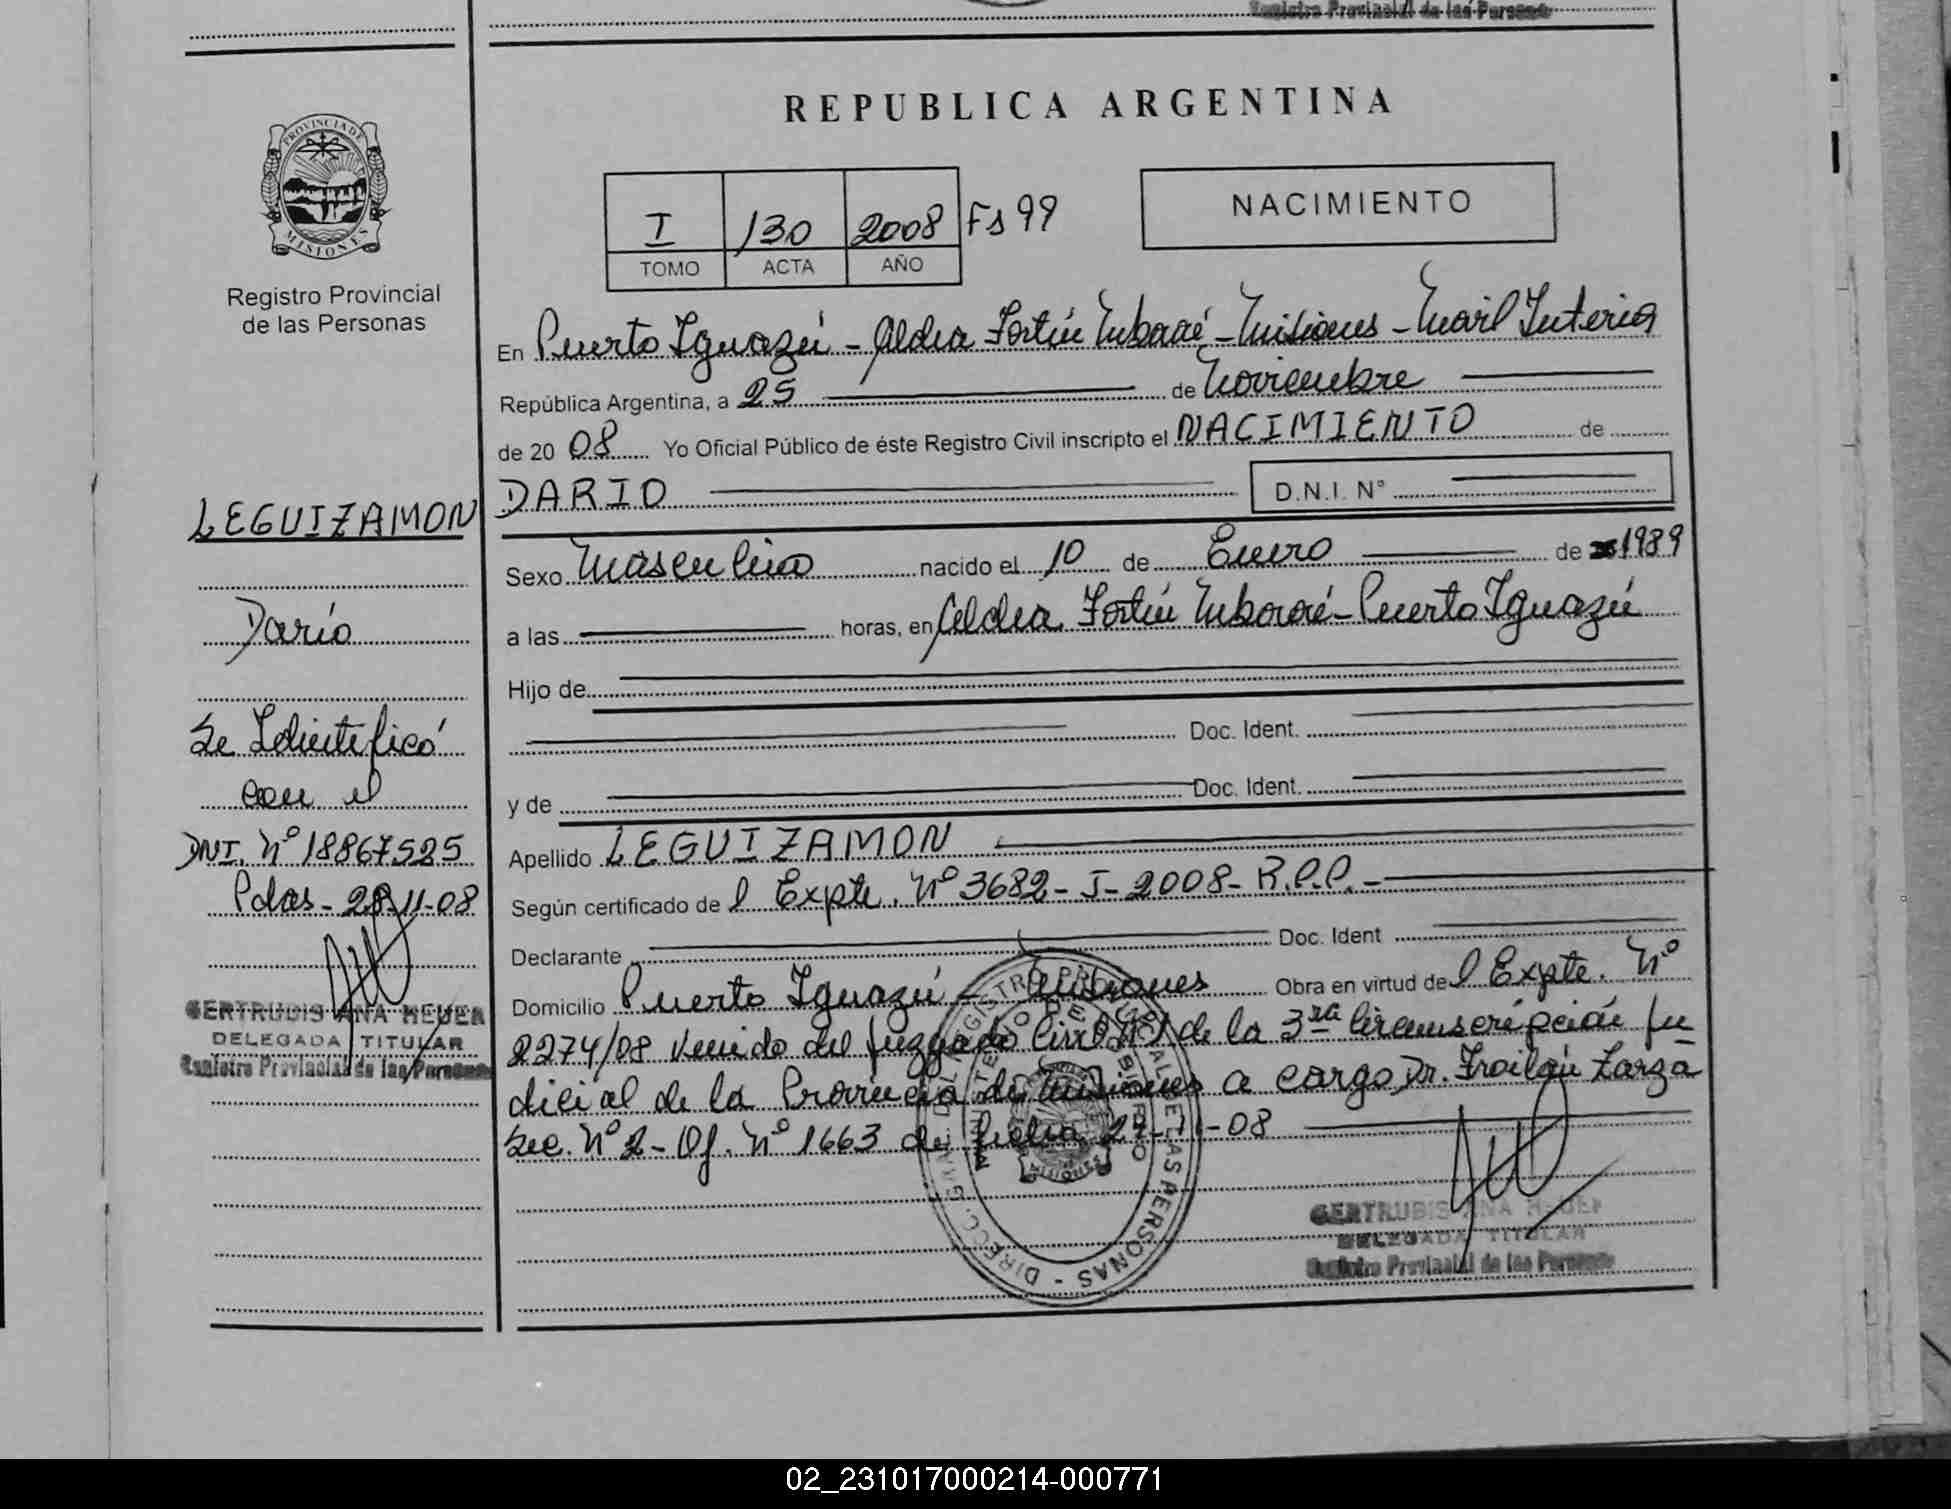 Registro Provincial de las Personas
REPUBLICA ARGENTINA
PROVINCIA DE MISIONES
Registro Provincial
de las Personas
I 130 2008 Fs 99
TOMO ACTA AÑO
NACIMIENTO
En Puerto Iguazú - Aldea Fortín Mbororé - Misiones
República Argentina, a 25 de Noviembre
de 20 08 Yo Oficial Público de éste Registro Civil inscripto el NACIMIENTO de
DARIO D.N.I. N°
Sexo Masculino nacido el 10 de Enero de 1989
a las horas, en Aldea Fortín Mbororé - Puerto Iguazú
Hijo de
Doc. Ident.
y de Doc. Ident.
Apellido LEGUIZAMON
Según certificado de l Expte. N° 3682 - I - 2008 - R.P.P. -
Declarante Doc. Ident
Domicilio Puerto Iguazú - Misiones Obra en virtud de l Expte. N°
2274/08 venido del Juzgado Civil de la 3ra Circunscripción Ju
dicial de la Provincia de Misiones a cargo Dr. Froilán Zarza
Sec. N° 2 - Of. N° 1663 de fecha 27-11-08
GERTRUDIS ANA HEUER
DELEGADA TITULAR
Registro Provincial de las Personas
LEGUIZAMON
Darío
Se Identificó
con el
DNI. N° 18867525
Pdas - 28-11-08
GERTRUDIS ANA HEUER
DELEGADA TITULAR
Registro Provincial de las Personas
02_231017000214-000771